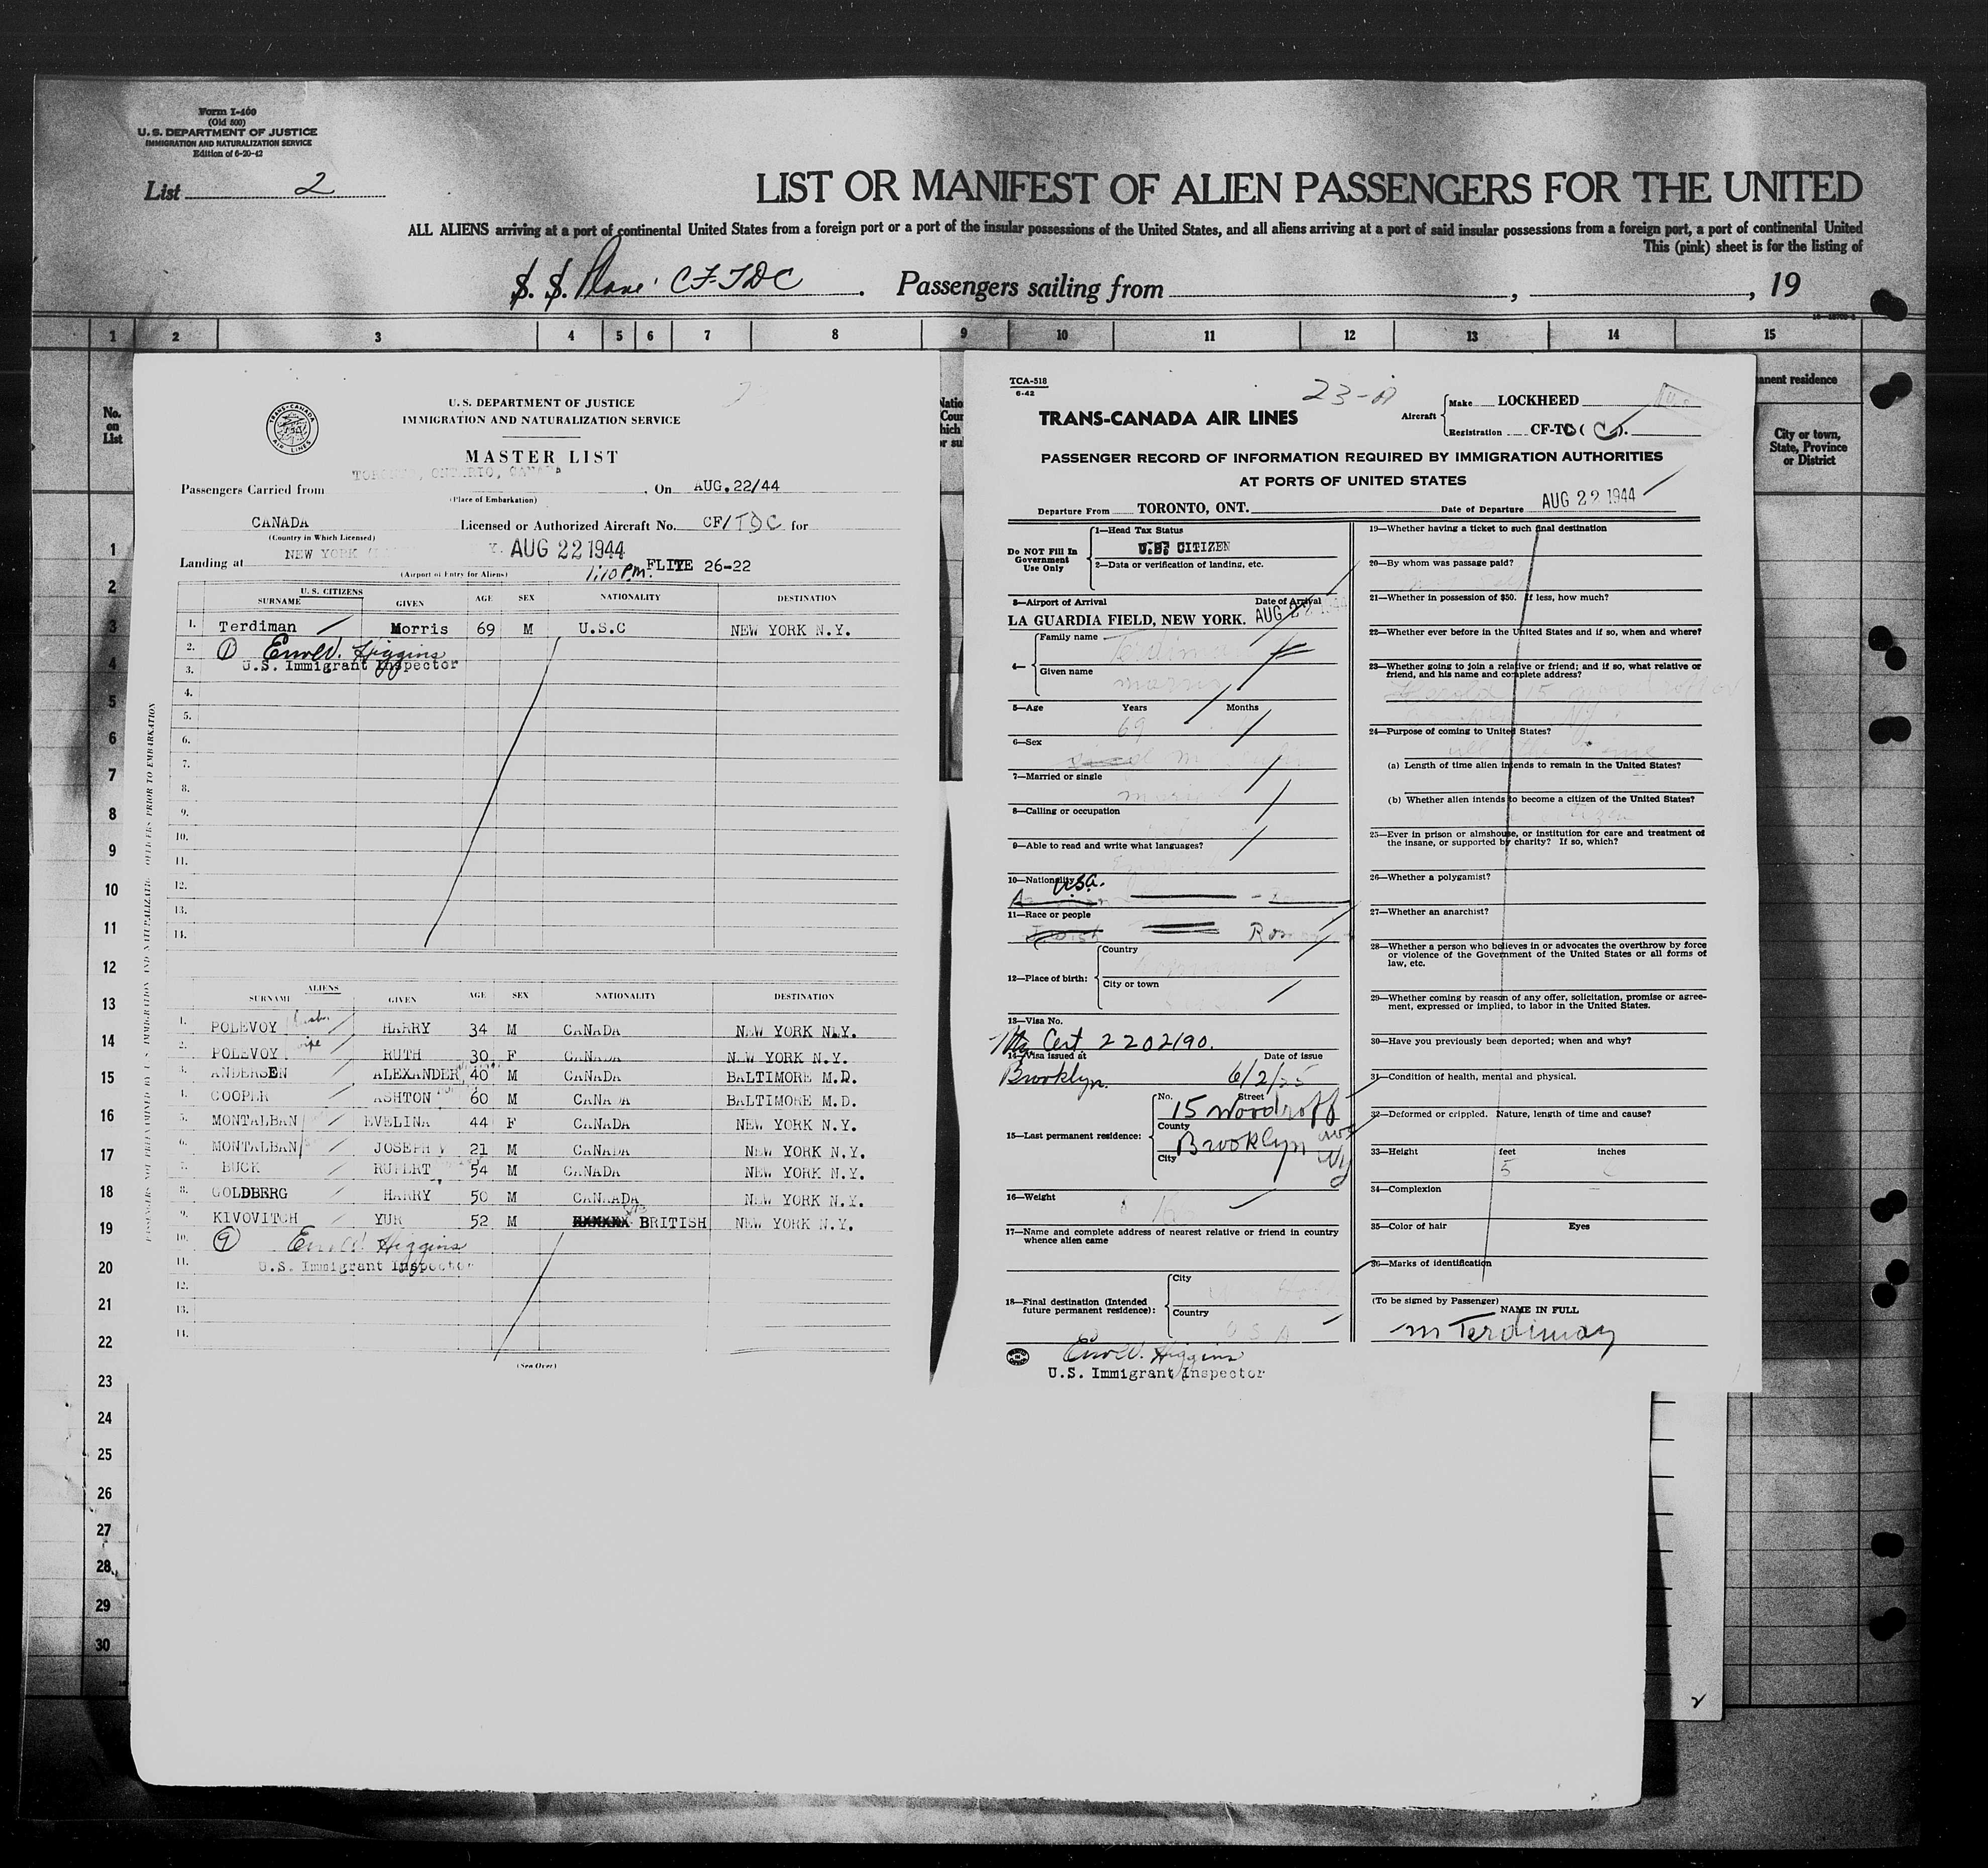 Form I-400
(Old 500)
U. S. DEPARTMENT OF JUSTICE
IMMIGRATION AND NATURALIZATION SERVICE
Edition of 6-20-42
List 2
LIST OR MANIFEST OF ALIEN PASSENGERS FOR THE UNITED
ALL ALIENS arriving at a port of continental United States from a foreign port or a port of the insular possessions of the United States, and all aliens arriving at a port of said insular possessions from a foreign port, a port of continental United
This (pink) sheet is for the listing of
S. S. Plane CF-TDC Passengers sailing from , , 19
1 2 3 4 5 6 7 8 9 10 11 12 13 14 15
No. on List
anent residence
City or town, State, Province or District
1
2
3
4
5
6
7
8
9
10
11
12
13
14
15
16
17
18
19
20
21
22
23
24
25
26
27
28
29
30
TRANS-CANADA AIR LINES
U. S. DEPARTMENT OF JUSTICE
IMMIGRATION AND NATURALIZATION SERVICE
MASTER LIST
TORONTO, ONTARIO, CANADA
Passengers Carried from , On AUG.22/44
(Place of Embarkation)
CANADA Licensed or Authorized Aircraft No. CF/TDC for
(Country in Which Licensed)
NEW YORK AUG 22 1944
Landing at 1:10 P.M. FLITE 26-22
(Airport of Entry for Aliens)
U. S. CITIZENS
SURNAME GIVEN AGE SEX NATIONALITY DESTINATION
1. Terdiman Morris 69 M U.S.C NEW YORK N.Y.
2. 1 Higgins
3. U.S. Immigrant Inspector
4.
5.
6.
7.
8.
9.
10.
11.
12.
13.
14.
ALIENS
SURNAME GIVEN AGE SEX NATIONALITY DESTINATION
1. POLEVOY HARRY 34 M CANADA NEW YORK N.Y.
2. POLEVOY wife RUTH 30 F CANADA NEW YORK N.Y.
3. ANDERSEN ALEXANDER 40 M CANADA BALTIMORE M.D.
4. COOPER ASHTON 60 M CANADA BALTIMORE M.D.
5. MONTALBAN EVELINA 44 F CANADA NEW YORK N.Y.
6. MONTALBAN JOSEPH 21 M CANADA NEW YORK N.Y.
7. BUCK RUPERT 54 M CANADA NEW YORK N.Y.
8. GOLDBERG HARRY 50 M CANAADA NEW YORK N.Y.
9. KIVOVITCH YUR 52 M BRITISH NEW YORK N.Y.
10. 9 Higgins
11. U.S. Immigrant Inspector
12.
13.
14.
(See Over)
TCA-518
6-42
23-A
TRANS-CANADA AIR LINES
Aircraft Make LOCKHEED
Registration CF-T
PASSENGER RECORD OF INFORMATION REQUIRED BY IMMIGRATION AUTHORITIES
AT PORTS OF UNITED STATES
Departure From TORONTO, ONT. Date of Departure AUG 22 1944
Do NOT Fill In Government Use Only
1—Head Tax Status
U.S. CITIZEN
2—Data or verification of landing, etc.
3—Airport of Arrival Date of Arrival
LA GUARDIA FIELD, NEW YORK. AUG 22 1944
4— Family name Terdiman
Given name Morris
5—Age Years Months
69
6—Sex
M
7—Married or single
8—Calling or occupation
9—Able to read and write what languages?
10—Nationality USA.
11—Race or people
12—Place of birth: Country
City or town
13—Visa No.
Cert 2202190.
14—Visa issued at Date of issue
Brooklyn. 6/2/25
15—Last permanent residence: No. Street
15 Woodroff
County
Brooklyn ave
City NY
16—Weight
17—Name and complete address of nearest relative or friend in country whence alien came
18—Final destination (Intended future permanent residence): City
Country
USA
Higgins
U.S. Immigrant Inspector
19—Whether having a ticket to such final destination
20—By whom was passage paid?
21—Whether in possession of $50. If less, how much?
22—Whether ever before in the United States and if so, when and where?
23—Whether going to join a relative or friend; and if so, what relative or friend, and his name and complete address?
24—Purpose of coming to United States?
(a) Length of time alien intends to remain in the United States?
(b) Whether alien intends to become a citizen of the United States?
25—Ever in prison or almshouse, or institution for care and treatment of the insane, or supported by charity? If so, which?
26—Whether a polygamist?
27—Whether an anarchist?
28—Whether a person who believes in or advocates the overthrow by force or violence of the Government of the United States or all forms of law, etc.
29—Whether coming by reason of any offer, solicitation, promise or agreement, expressed or implied, to labor in the United States.
30—Have you previously been deported; when and why?
31—Condition of health, mental and physical.
32—Deformed or crippled. Nature, length of time and cause?
33—Height feet inches
5
34—Complexion
35—Color of hair Eyes
36—Marks of identification
(To be signed by Passenger)
NAME IN FULL
M Terdiman
2